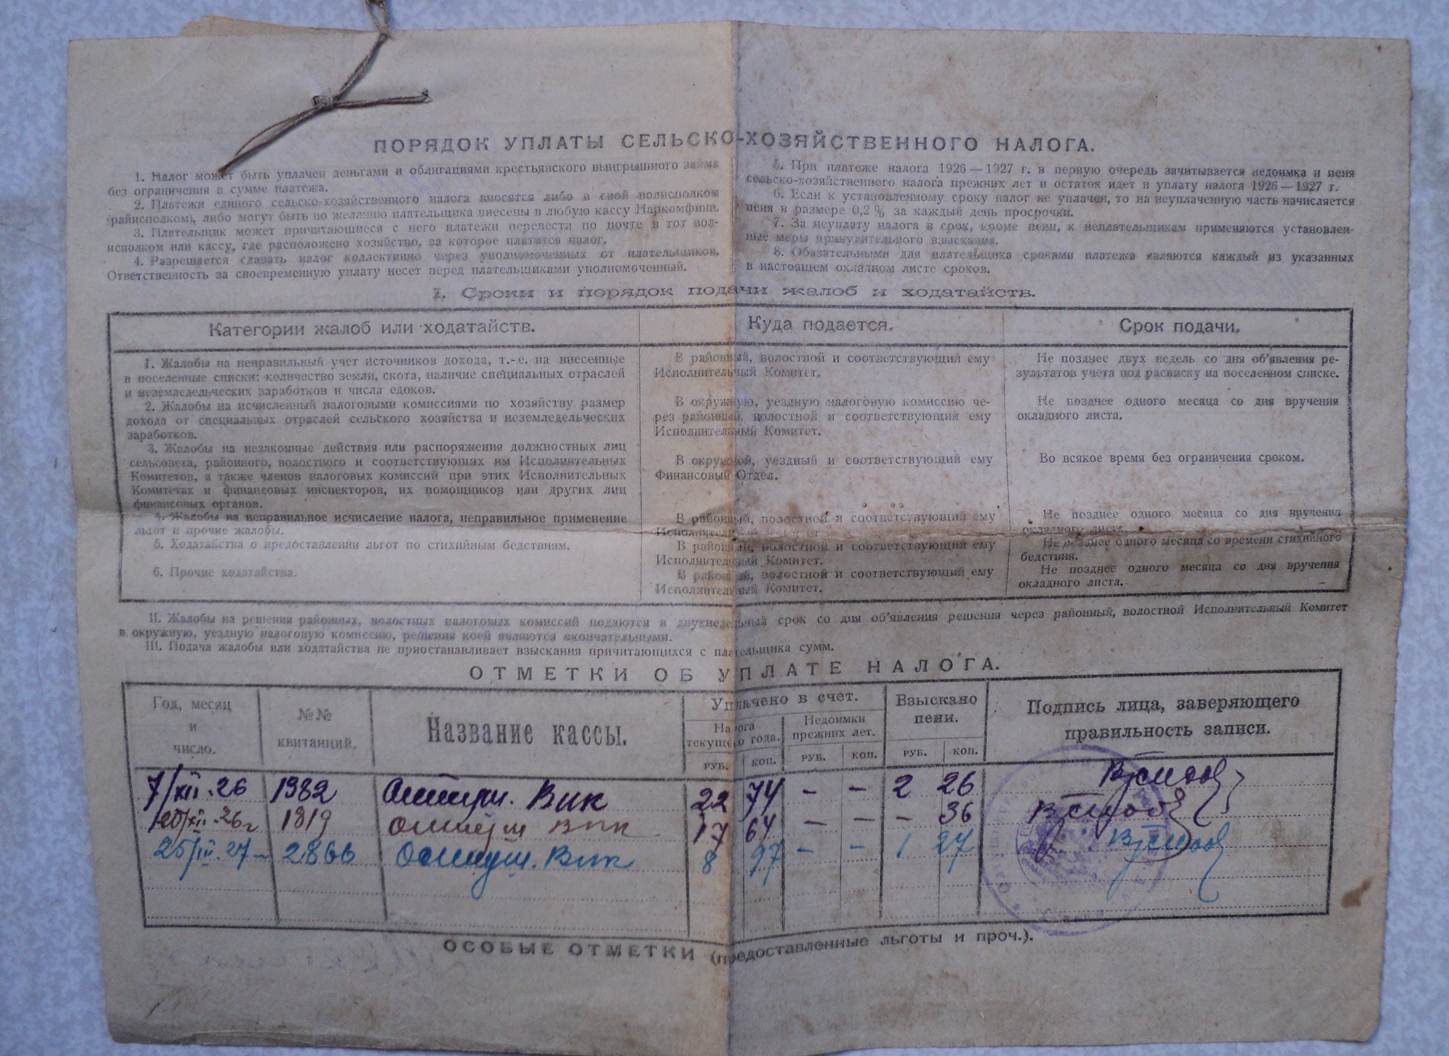 ПОРЯДОК УПЛАТЫ СЕЛЬСКО-ХОЗЯЙСТВЕННОГО НАЛОГА.
1. Налог может быть уплачен деньгами и облигациями крестьянского выигрышного займа
без ограничения в сумме платежа.
2. Платежи единого сельско-хозяйственного налога вносятся либо в свой волисполком
(райисполком), либо могут быть по желанию плательщика внесены в любую кассу Наркомфина.
3. Плательщик может причитающиеся с него платежи перевести по почте в тот вол-
исполком или кассу, где расположено хозяйство, за которое платится налог.
4. Разрешается сдавать налог коллективно через уполномоченных от плательщиков.
Ответственность за своевременную уплату несет перед плательщиками уполномоченный.
5. При платеже налога 1926—1927 г. в первую очередь зачитывается недоимка и пеня
сельско-хозяйственного налога прежних лет и остаток идет в уплату налога 1926—1927 г.
6. Если к установленному сроку налог не уплачен, то на неуплаченную часть начисляется
пеня в размере 0,2% за каждый день просрочки.
7. За неуплату налога в срок, кроме пени, к неплательщикам применяются установлен-
ные меры принудительного взыскания.
8. Обязательными для плательщика сроками платежа являются каждый из указанных
в настоящем окладном листе сроков.
I. Сроки и порядок подачи жалоб и ходатайств.
Категории жалоб или ходатайств. Куда подается. Срок подачи.
1. Жалобы на неправильный учет источников дохода, т.-е. на внесенные
в поселенные списки: количество земли, скота, наличие специальных отраслей
и неземледельческих заработков и числа едоков.
В районный, волостной и соответствующий ему
Исполнительный Комитет.
Не позднее двух недель со дня об'явления ре-
зультатов учета под расписку на поселенном списке.
2. Жалобы на исчисленный налоговыми комиссиями по хозяйству размер
дохода от специальных отраслей сельского хозяйства и неземледельческих
заработков.
В окружную, уездную налоговую комиссию че-
рез районный, волостной и соответствующий ему
Исполнительный Комитет.
Не позднее одного месяца со дня вручения
окладного листа.
3. Жалобы на незаконные действия или распоряжения должностных лиц
сельсовета, районного, волостного и соответствующих им Исполнительных
Комитетов, а также членов налоговых комиссий при этих Исполнительных
Комитетах и финансовых инспекторов, их помощников или других лиц
финансовых органов.
В окружной, уездный и соответствующий ему
Финансовый Отдел.
Во всякое время без ограничения сроком.
4. Жалобы на неправильное исчисление налога, неправильное применение
льгот и прочие жалобы.
В районный, волостной и соответствующий ему
Исполнительный Комитет.
Не позднее одного месяца со дня вручения
окладного листа.
5. Ходатайства о предоставлении льгот по стихийным бедствиям.
В районный, волостной и соответствующий ему
Исполнительный Комитет.
Не позднее одного месяца со времени стихийного
бедствия.
6. Прочие ходатайства.
В районный, волостной и соответствующий ему
Исполнительный Комитет.
Не позднее одного месяца со дня вручения
окладного листа.
II. Жалобы на решения районных, волостных налоговых комиссий подаются в двухнедельный срок со дня об'явления решения через районный, волостной Исполнительный Комитет
в окружную, уездную налоговую комиссию, решения коей являются окончательными.
III. Подача жалобы или ходатайства не приостанавливает взыскания причитающихся с плательщика сумм.
ОТМЕТКИ ОБ УПЛАТЕ НАЛОГА.
Год, месяц
и
число.
№№
квитанций.
Название кассы.
Уплачено в счет.
Налога
текущего года.
Недоимки
прежних лет.
Взыскано
пени.
Подпись лица, заверяющего
правильность записи.
РУБ. коп. РУБ. коп. РУБ. коп.
7/XII.26 1982 Вик 22 74 — — 2 26
20/XII.26г 1819 Вик 17 64 — — — 36
25/III.27 2866 Вик 8 27 — — 1 27
ОСОБЫЕ ОТМЕТКИ (предоставленные льготы и проч.).